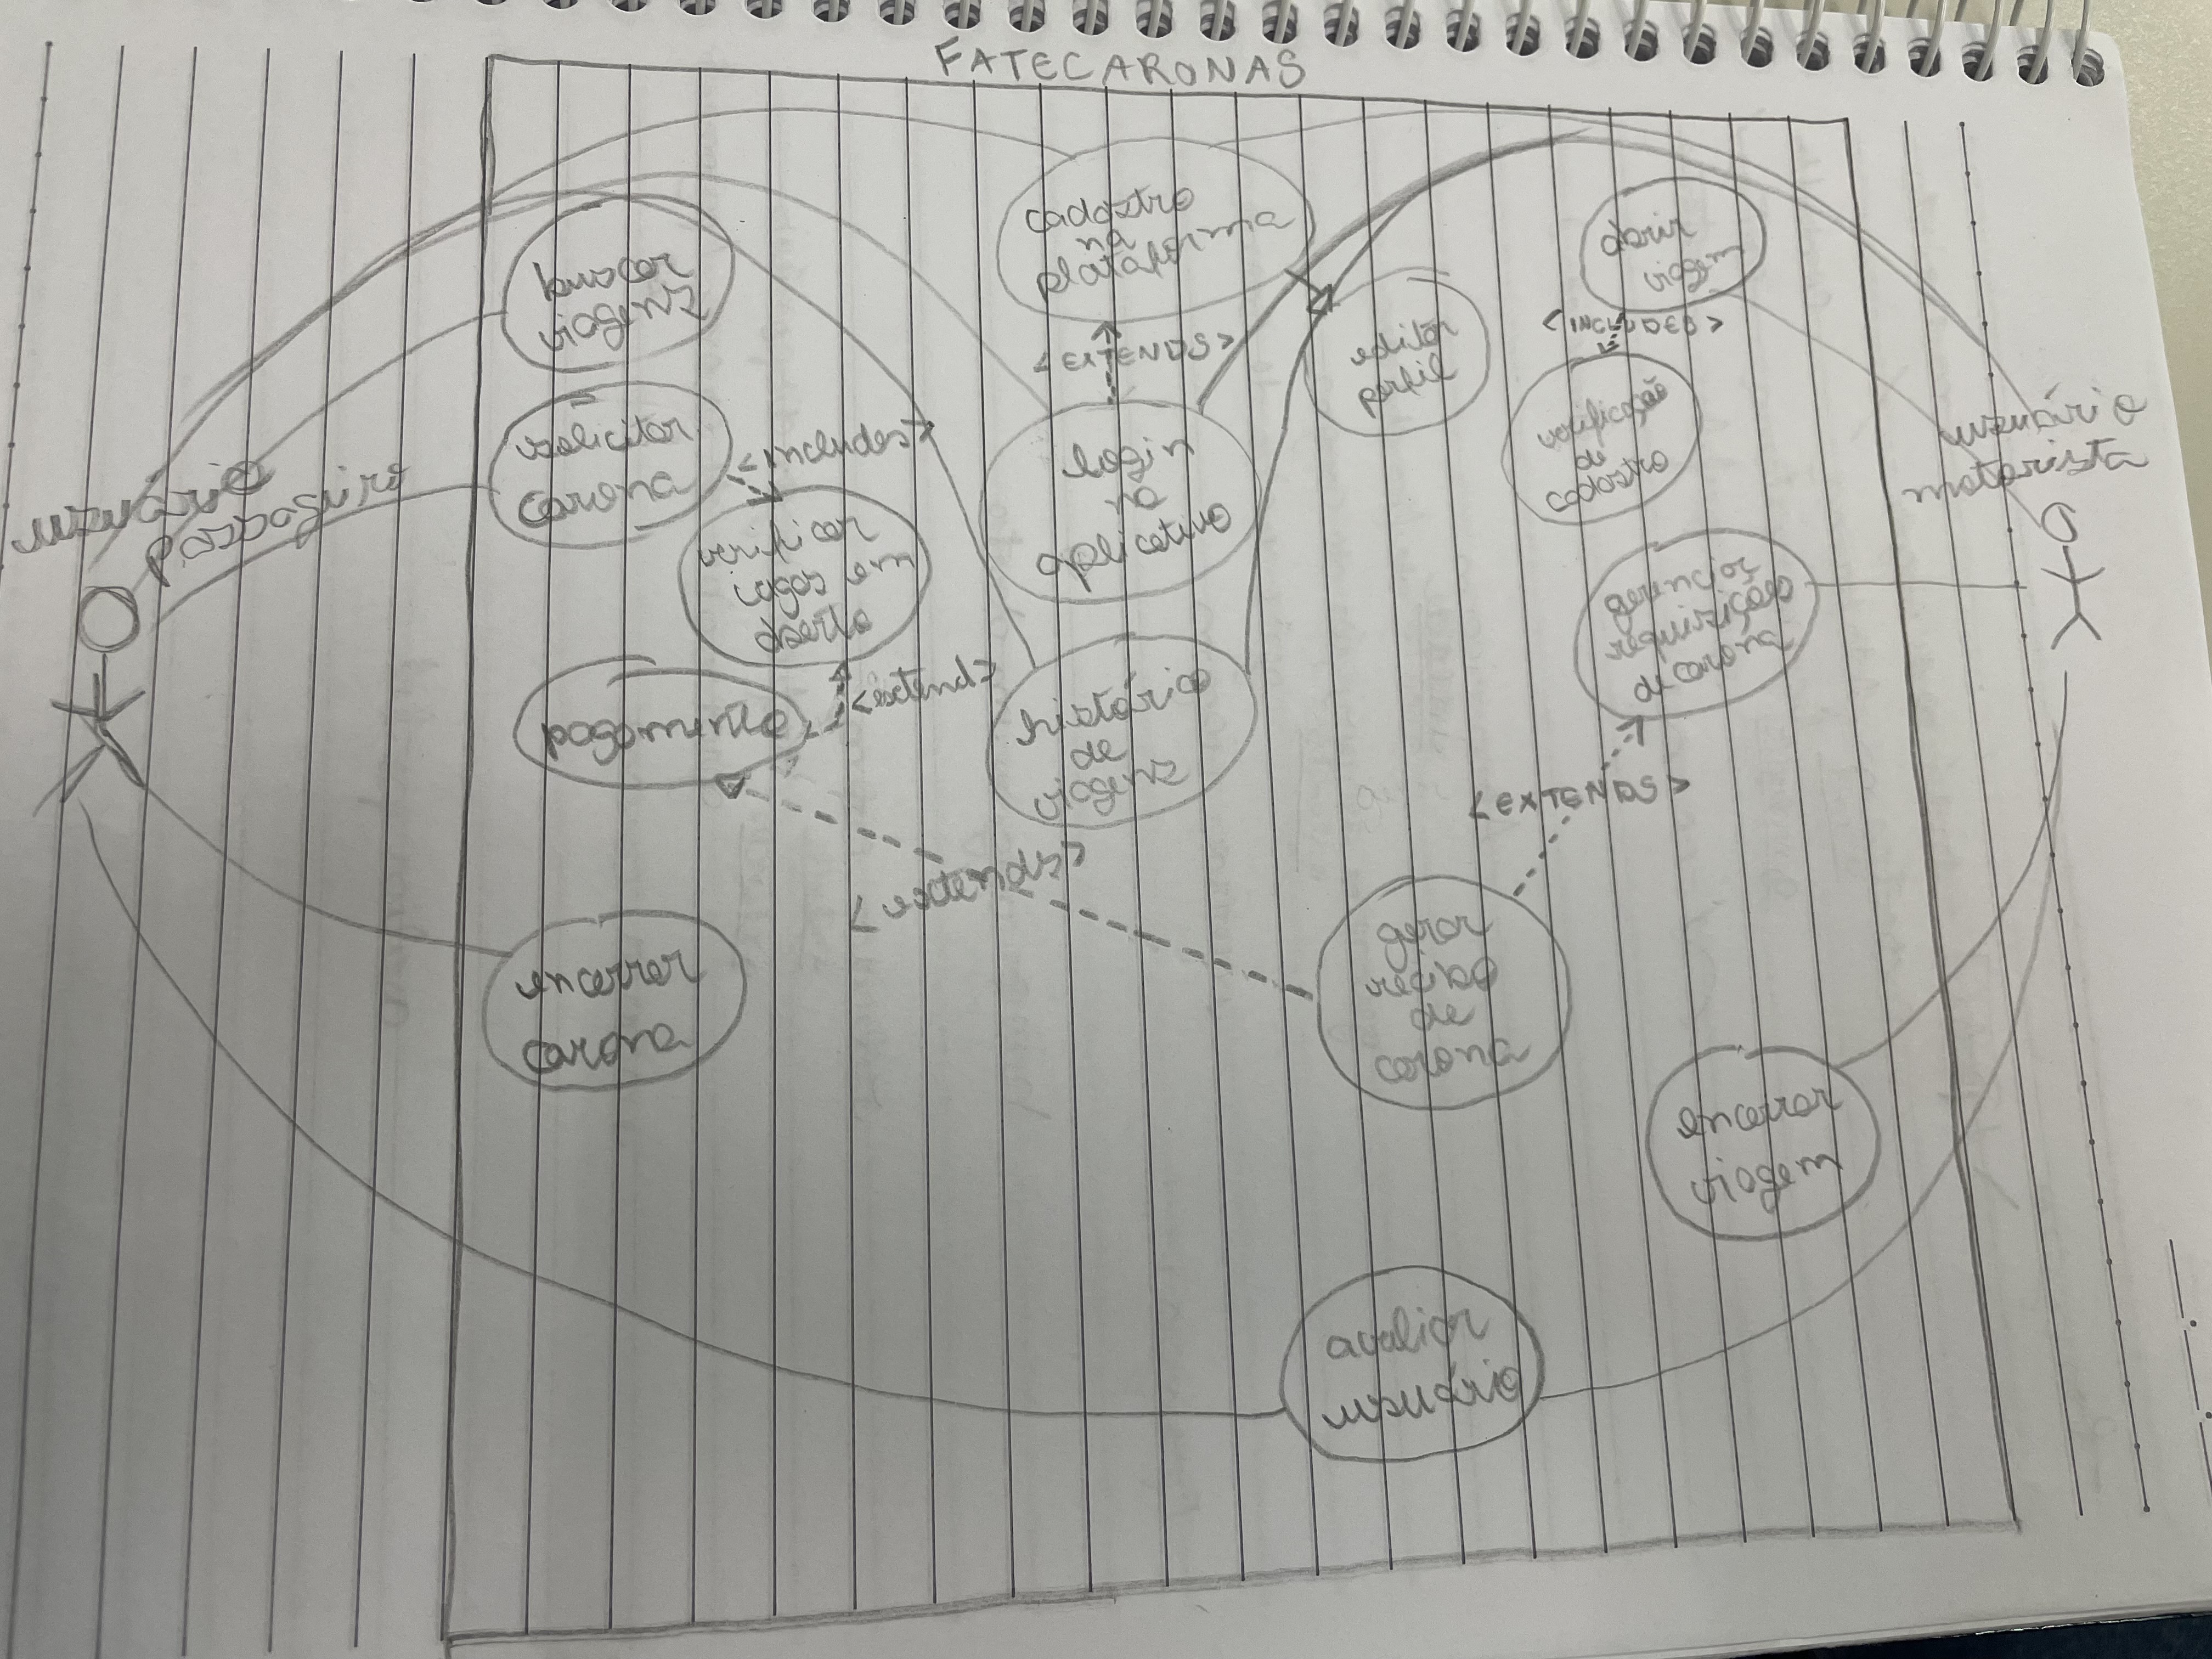 FATECARONAS
usuário
passageiro
buscar
viagens
solicitar
carona
<includes>
verificar
em
aberto
pagamento
<extend>
<extends>
encerrar
carona
cadastro
na
plataforma
<EXTENDS>
login
no
aplicativo
histórico
de
viagens
editar
perfil
abrir
viagem
<INCLUDES>
verificação
de
cadastro
gerenciar
requisições
de carona
<EXTENDS>
gerar
recibo
de
carona
encerrar
viagem
avaliar
usuário
usuário
motorista